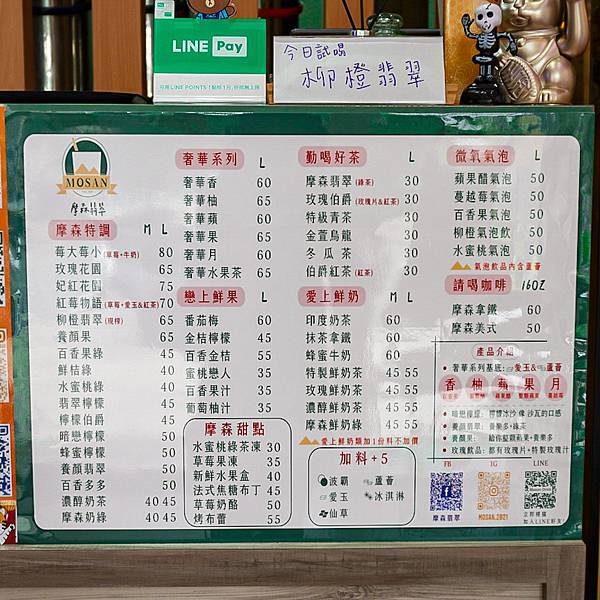 LINE Pay
今日試喝
柳橙翡翠
MOSAN
摩森翡翠
摩森特調 M L
莓大莓小(草莓+牛奶) 80
玫瑰花園 65
妃紅花園 75
紅莓物語(草莓+愛玉&紅茶) 70
柳橙翡翠(現榨) 65
養顏果 65
百香果綠 45
鮮桔綠 40
水蜜桃綠 40
翡翠檸檬 45
檸檬伯爵 45
暗戀檸檬 50
給蜜檸檬 50
養顏翡翠 50
百香多多 50
濃醇奶茶 40 45
摩森奶綠 40 45
奢華系列 L
奢華香 60
奢華柚 65
奢華蘋 60
奢華果 65
奢華月 60
奢華水果茶 65
戀上鮮果 L
番茄梅 60
金桔檸檬 45
百香金桔 55
蜜桃戀人 35
百香果汁 35
葡萄柚汁 35
摩森甜點
水蜜桃綠茶凍 30
草莓果凍 35
新鮮水果盒 40
法式焦糖布丁 45
草莓奶酪 50
烤布蕾 55
勤喝好茶 L
摩森翡翠(綠茶) 30
玫瑰伯爵(玫瑰片&紅茶) 30
特級青茶 30
金萱烏龍 30
冬瓜茶 30
伯爵紅茶(紅茶) 30
愛上鮮奶 M L
印度奶茶 60
抹茶拿鐵 60
蜂蜜牛奶 60
特製鮮奶茶 45 55
玫瑰鮮奶茶 45 55
濃醇鮮奶茶 45 55
摩森鮮奶綠 45 55
愛上鮮奶類加1份料不加價
加料+5
波霸 蘆薈
愛玉 冰淇淋
仙草
微氧氣泡 L
蘋果醋氣泡 50
蔓越莓氣泡 50
百香果氣泡 50
柳橙氣泡飲 50
水蜜桃氣泡 50
氣泡飲品內含蘆薈
請喝咖啡 16OZ
摩森拿鐵 60
摩森美式 50
產品介紹
• 奢華系列基底: 愛玉& 蘆薈
香 柚 蘋 果 月
• 暗戀檸檬: 檸檬冰沙 像 沙瓦的口感
• 養顏翡翠: 養樂多+綠茶
• 養顏果:
• 玫瑰飲品: 都有玫瑰片+特製玫瑰汁
FB IG LINE
摩森翡翠 MOSAN.2021
加入LINE好友